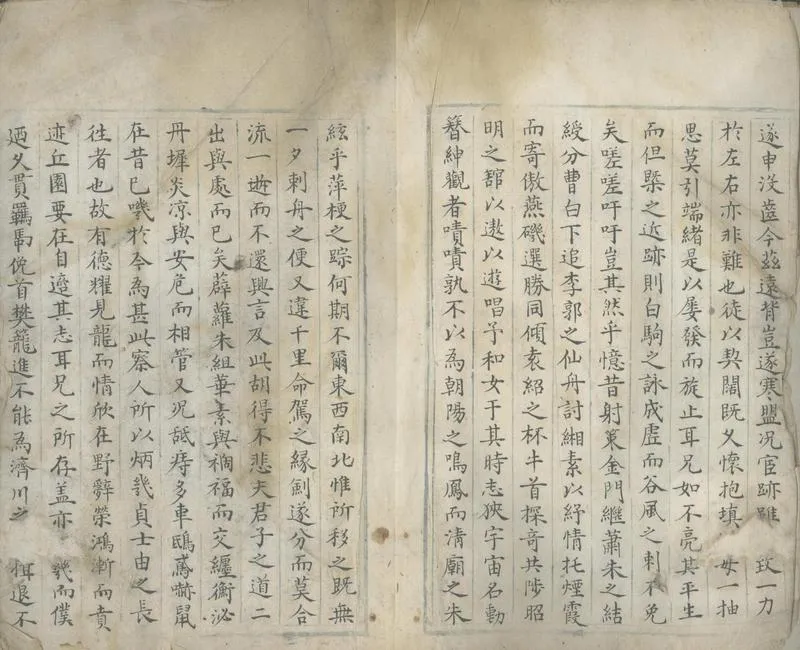 遂申没齒今茲遠背豈遂寒盟况宦跡雖 玫一力
於左右亦非難也徒以契闊既久懷抱填 毎一抽
思莫引端緒是以屡發而旋止耳兄如不亮其平生
而但槩之近跡則白駒之詠成虛而谷風之刺不免
矣嗟嗟吁吁豈其然乎憶昔射策金門繼蕭朱之結
綬分曹白下追李郭之仙舟討緗素以紓情托煙霞
而寄傲燕磯選勝同傾袁紹之杯牛首探奇共陟昭
明之舘以遨以遊唱予和女于其時志狹宇宙名動
簪紳觀者嘖嘖孰不以為朝陽之鳴鳳而清廟之朱
絃乎萍梗之踪何期不爾東西南北惟所移之既無
一夕刺舟之便又違千里命駕之緣劍遂分而莫合
流一逝而不還興言及此胡得不悲夫君子之道二
出與處而已矣薜蘿朱組華素與禍福而交纏衡泌
丹墀炎凉與安危而相管又况舐痔多車鴟鳶嚇鼠
在昔已嘰於今為甚此寮人所以炳幾貞士由之長
往者也故有德耀見龍而情欣在野辭榮鴻漸而賁
迹丘園要在自適其志耳兄之所存盖亦 幾而僕
迺久貫羈馽俛首樊籠進不能為濟川之 楫退不